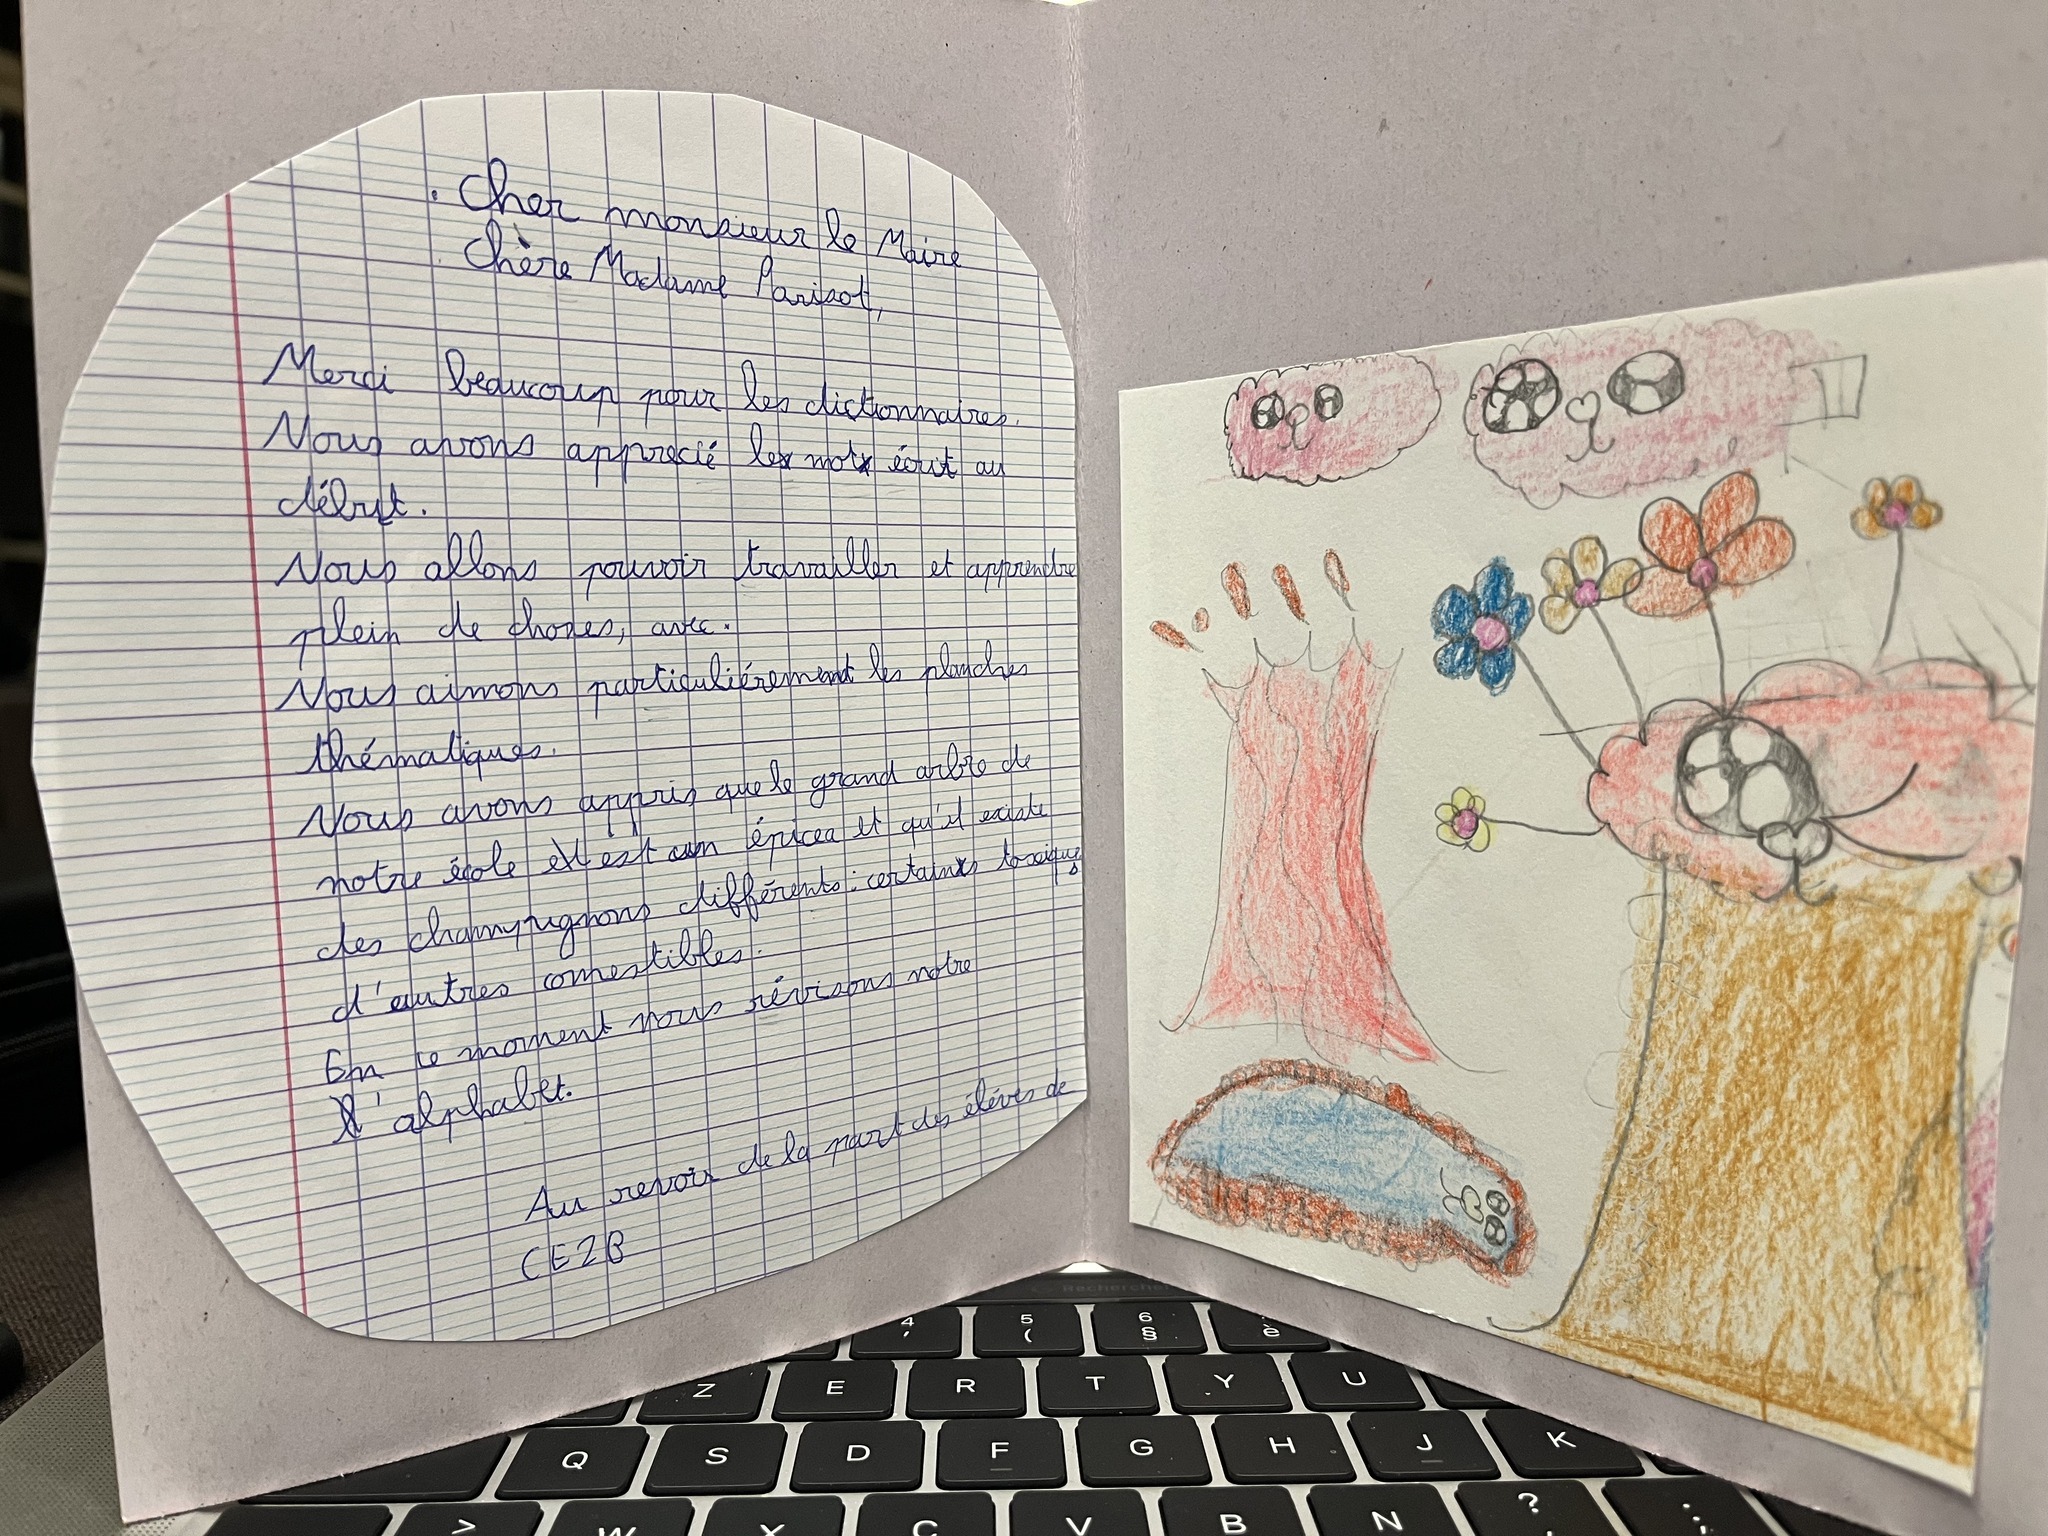 Cher monsieur le Maire
Chère Madame Parisot,
Merci beaucoup pour les dictionnaires.
Nous avons apprecié le mot écrit au
début.
Nous allons pouvoir travailler et apprendre
plein de choses, avec.
Nous aimons particuliérement les planches
thématiques.
Nous avons appris que le grand arbre de
notre école est un épicea et qu'il existe
des champignons différents : certains toxiques
d'autres comestibles.
En ce moment nous révisons notre
l'alphabet.
Au revoir de la part des élèves de
CE2B
Recherche
4 5 6
' ( § è
Z E R T Y U
Q S D F G H J K
> W X C V B N ? ;